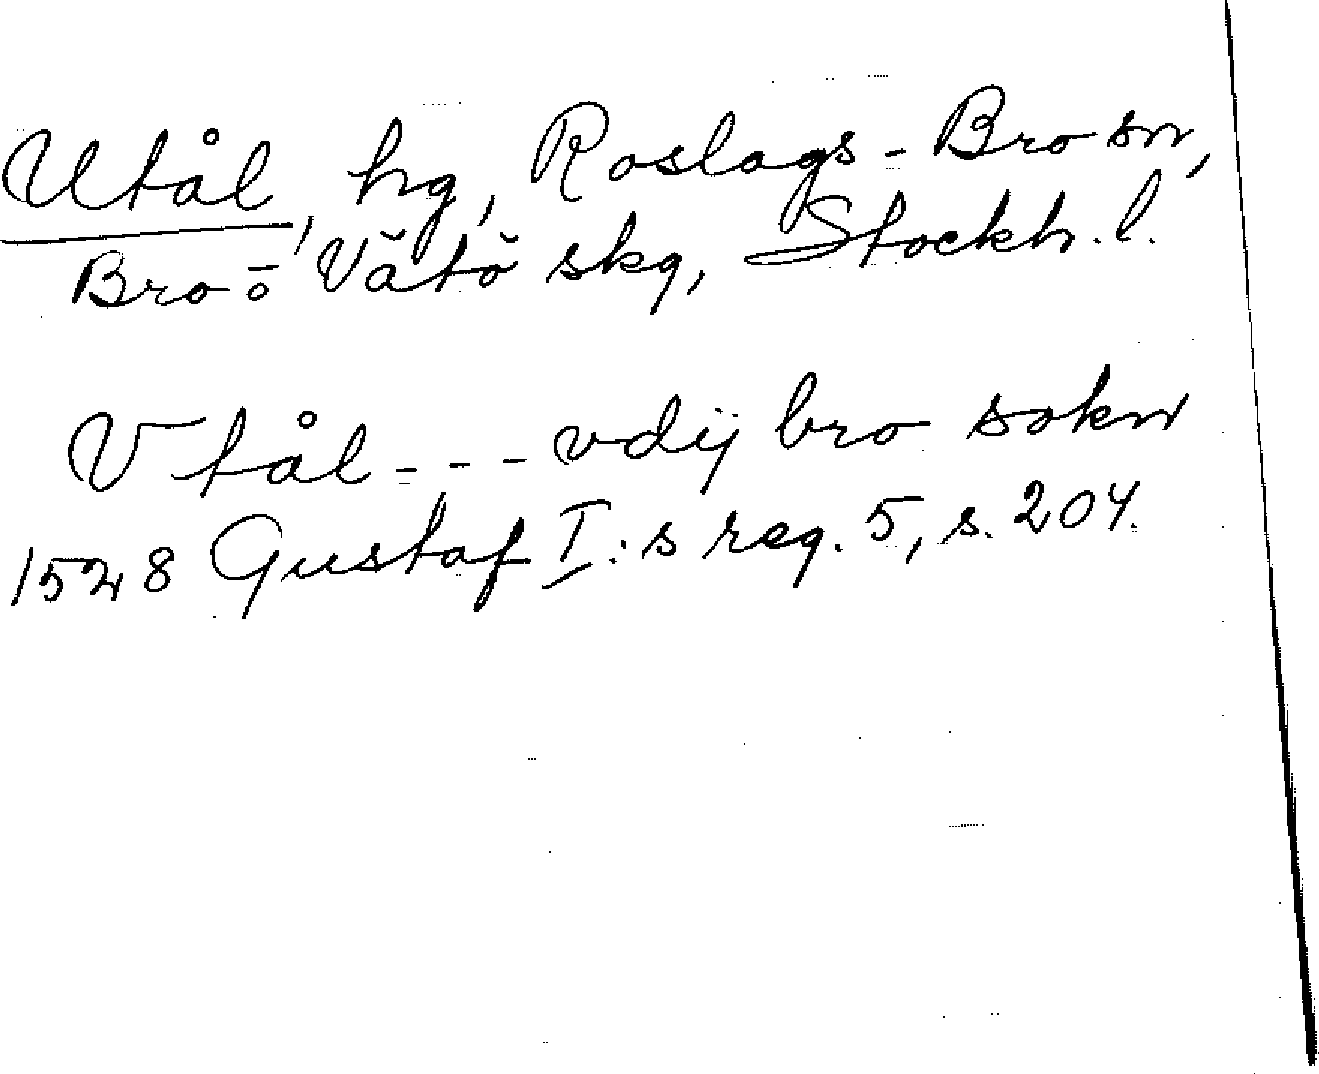 Utål, hg, Roslags-Bro sn,
Bro o Vätö skg, Stockh. l.
Vtål - - - vdij bro sokn
1528 Gustaf I:s reg. 5, s. 204.